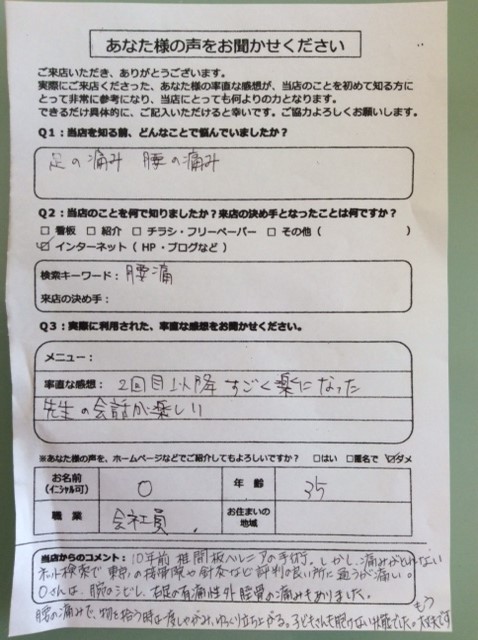 あなた様の声をお聞かせください
ご来店いただき、ありがとうございます。
実際にご来店くださった、あなた様の率直な感想が、当店のことを初めて知る方に
とって非常に参考になり、当店にとっても何よりの力となります。
できるだけ具体的に、ご記入いただけると幸いです。ご協力よろしくお願いします。
Q1:当店を知る前、どんなことで悩んでいましたか?
足の痛み 腰の痛み
Q2:当店のことを何で知りましたか?来店の決め手となったことは何ですか?
□ 看板 □ 紹介 □ チラシ・フリーペーパー □ その他( )
☑ インターネット(HP・ブログなど)
検索キーワード:腰痛
来店の決め手:
Q3:実際に利用された、率直な感想をお聞かせください。
メニュー:
率直な感想:2回目以降すごく楽になった
先生の会話が楽しい
※あなた様の声を、ホームページなどでご紹介してもよろしいですか? □はい □匿名で ☑ダメ
お名前 (イニシャル可) O 年齢 35
職業 会社員 お住まいの地域
当店からのコメント:10年前 椎間板ヘルニアの手術。しかし痛みがとれない
ネット検索で 東京の接骨院や針灸など評判の良い所に通うが痛い。
Oさんは、腕のシビレ、右足の有痛性外脛骨の痛みもありました。
腰の痛みで、物を拾う時は一度しゃがみ、ゆっくり立ち上がる。子どもさんも抱けない状態でした。もう大丈夫です